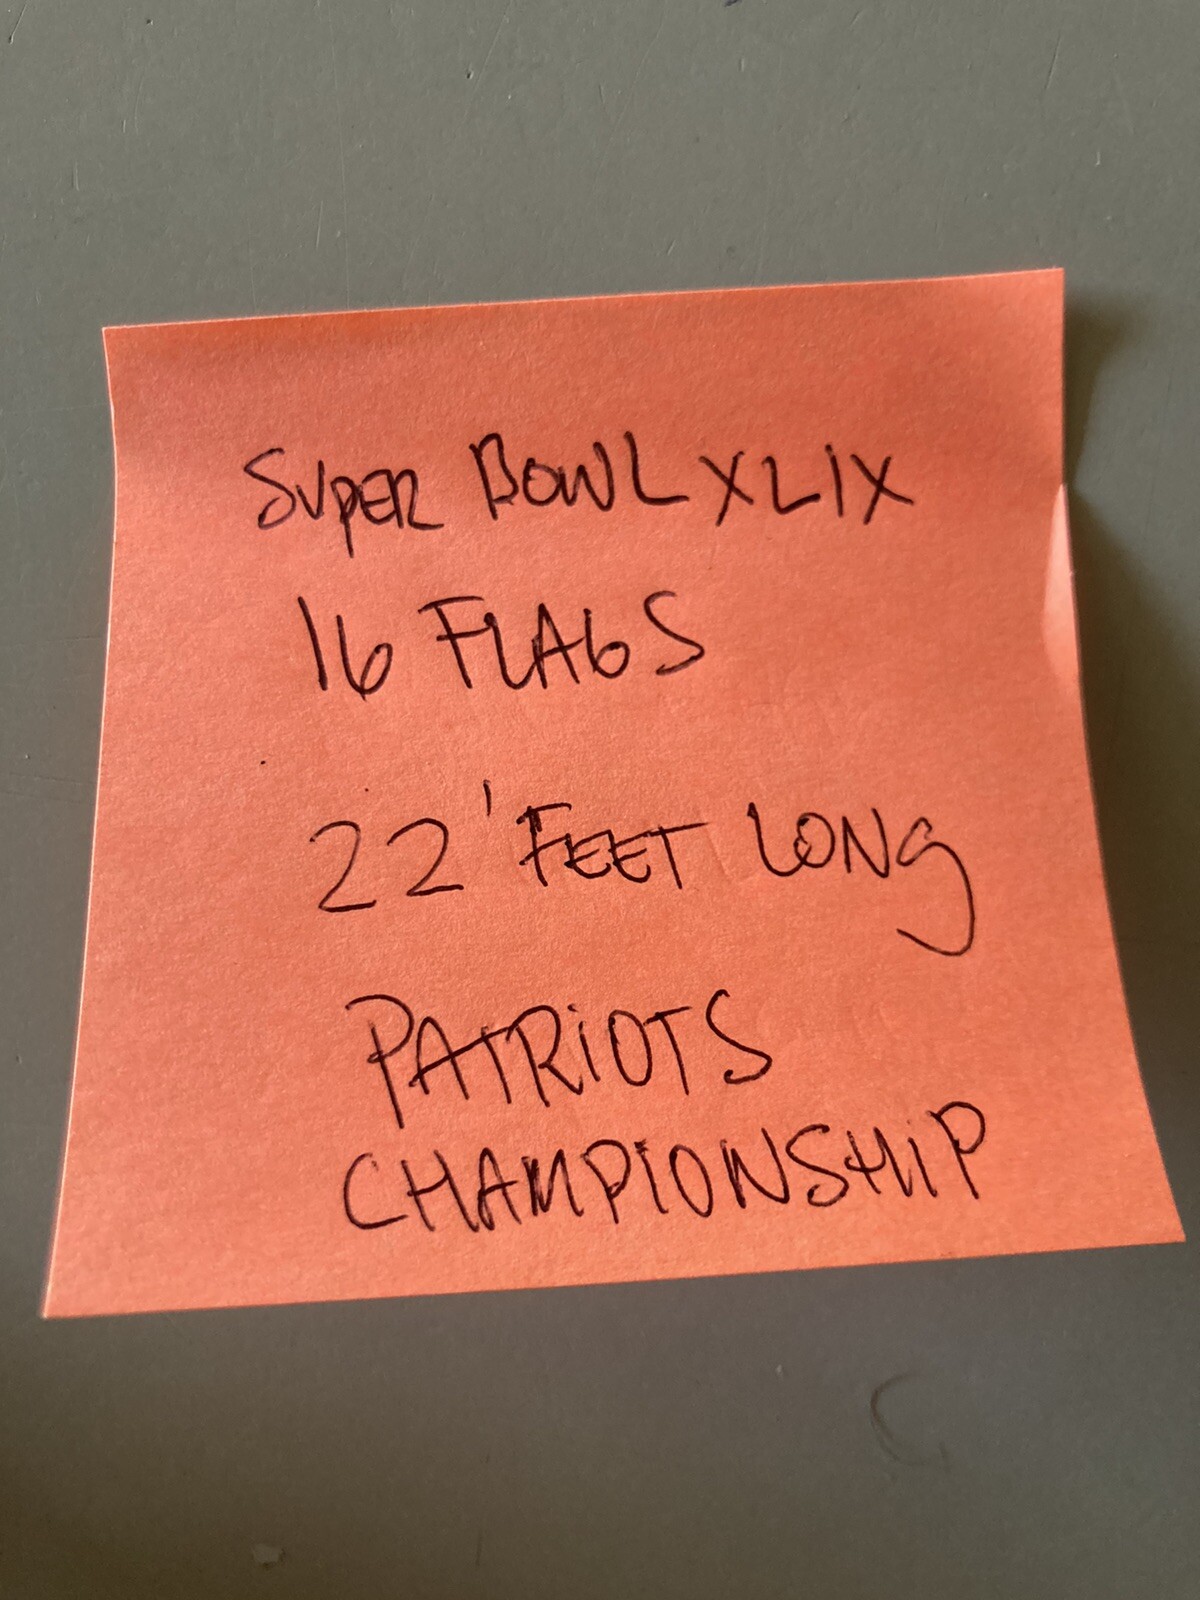 SUPER BOWL XLIX
16 FLAGS
22' FEET LONG
PATRIOTS
CHAMPIONSHIP